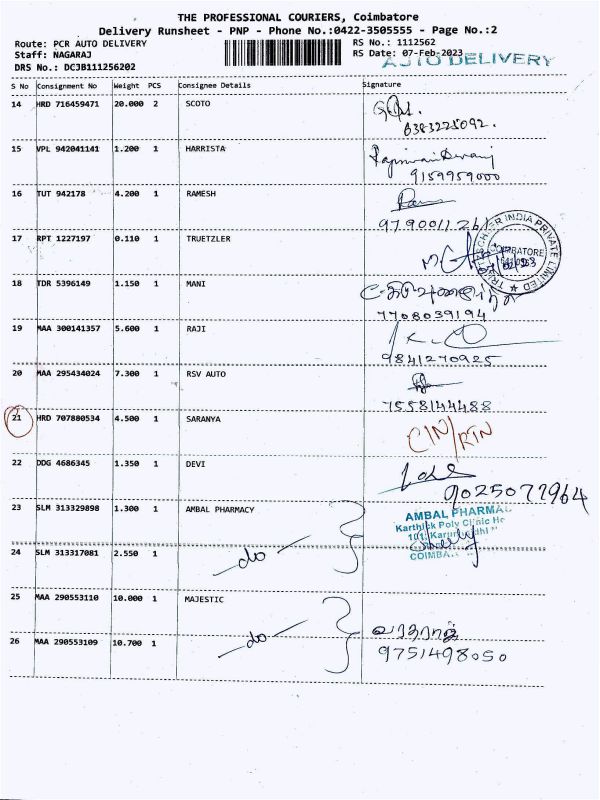 THE PROFESSIONAL COURIERS, Coimbatore
Delivery Runsheet - PNP - Phone No.:0422-3505555 - Page No.:2
Route: PCR AUTO DELIVERY
RS No.: 1112562
Staff: NAGARAJ
RS Date: 07-Feb-2023
AUTO DELIVERY
DRS No.: DCJB1112562O2
S No Consignment No Weight PCS Consignee Details Signature
14 HRD 716459471 20.000 2 SCOTO
6383225092.
15 VPL 942041141 1.200 1 HARRISTA
9159959000
16 TUT 942178 4.200 1 RAMESH
9790011261
17 RPT 1227197 0.110 1 TRUETZLER
INDIA PRIVATE LIMITED
COIMBATORE
18 TDR 5396149 1.150 1 MANI
7708039194
19 MAA 300141357 5.600 1 RAJI
9841270925
20 MAA 295434024 7.300 1 RSV AUTO
7558144488
21 HRD 707880534 4.500 1 SARANYA
CIN/RTN
22 DDG 4686345 1.350 1 DEVI
9025077964
23 SLM 313329898 1.300 1 AMBAL PHARMACY
AMBAL PHARMAC
Karthick Poly Clinic Ho
COIMBA
24 SLM 313317081 2.550 1
do
25 MAA 290553110 10.000 1 MAJESTIC
வரதராஜ்
26 MAA 290553109 10.700 1
do
9751498050